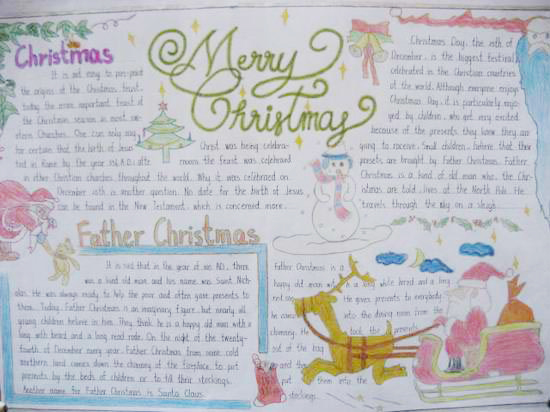 Christmas
It is not easy to pin-point
the origins of the Christmas feast,
today the most important feast of
the Christmas season in most wes-
tern Churches. One can only say
for certain that the birth of Jesus Christ was being celebra-
ted in Rome by the year 336 A.D; afte moon the feast was celebrated
in other Christian churches throughout the world. Why it was celebrated on
December 25th is another question. No date for the birth of Jesus
can be found in the New Testament, which is concerned more
Merry
Christmas
Christmas Day, the 25th of
December, is the biggest festival
celebrated in the Christian countries
of the world. Although everyone enjoys
Christmas Day, it is particularly enjo-
yed by children, who get very excited
because of the presents they know they are
going to receive. Small children believe that their
presets are brought by Father Christmas. Father
Christmas is a kind of old man who, the Chr-
istmas are told, lives at the North Pole. He
travels through the sky on a sleigh
Father Christmas
It is said that in the year of 300 A.D., there
was a kind old man and his name was Saint Nich-
olas. He was always ready to help the poor and often gave presents to
them. Today, Father Christmas is an imaginary figure, but nearly all
young children believe in him. They think he is a happy old man with a
long with beard and a long read robe. On the night of the twenty-
fourth of December every year, Father Christmas from some cold
northern land comes down the chimney of the fireplace to put
presents by the beds of children or to fill their stockings.
Another name for Father Christmas is Santa Claus.
Father Christmas is a
happy old man with a long while beard and a long
red He gives presents to everybody
he comes into the dining room from the
chimney. He took the presents
out of the bag
and then
put them into the
stockings